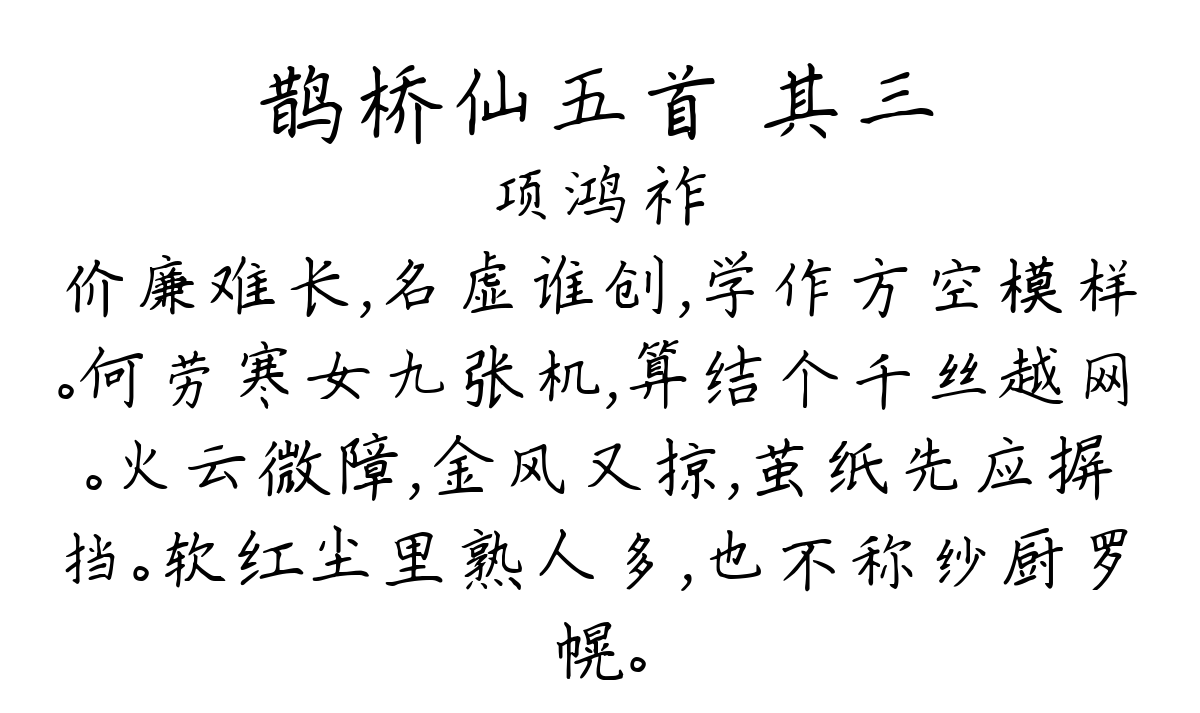 鹊桥仙五首 其三
项鸿祚
价廉难长,名虚谁创,学作方空模样
。何劳寒女九张机,算结个千丝越网
。火云微障,金风又掠,茧纸先应摒
挡。软红尘里熟人多,也不称纱厨罗
幌。